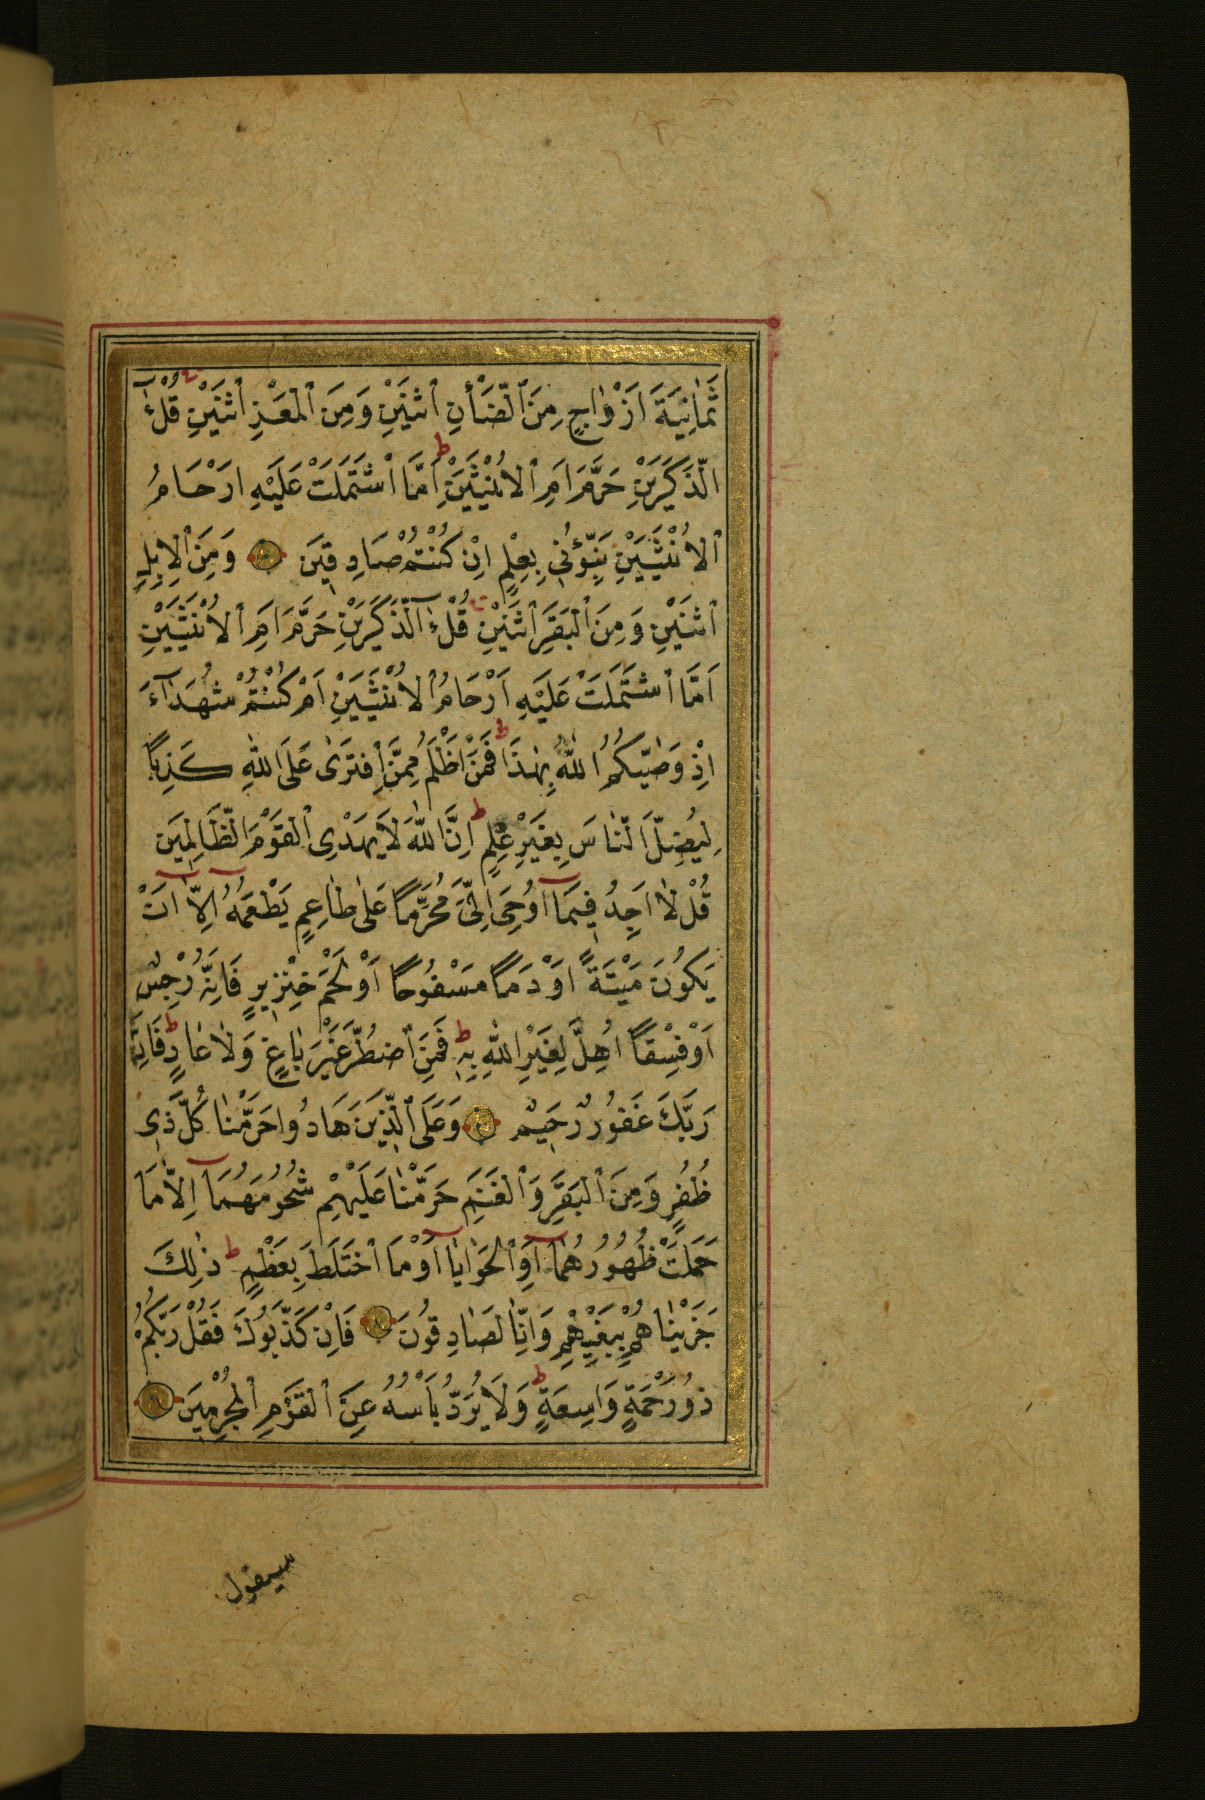 ثَمَانِيَةَ اَزْوَاجٍ مِنَ ٱلضَّأْنِ ٱثْنَيْنِ وَمِنَ ٱلْمَعْزِ ٱثْنَيْنِ قُلْ ءٰۤ
الذَّكَرَيْنِ حَرَّمَ اَمِ ٱلْاُنْثَيَيْنِ اَمَّا ٱشْتَمَلَتْ عَلَيْهِ اَرْحَامُ
ٱلْاُنْثَيَيْنِ نَبِّؤُنِي بِعِلْمٍ اِنْ كُنْتُمْ صَادِقِينَ وَمِنَ ٱلْاِبِلِ
ٱثْنَيْنِ وَمِنَ ٱلْبَقَرِ ٱثْنَيْنِ قُلْ ءٰۤالذَّكَرَيْنِ حَرَّمَ اَمِ ٱلْاُنْثَيَيْنِ
اَمَّا ٱشْتَمَلَتْ عَلَيْهِ اَرْحَامُ ٱلْاُنْثَيَيْنِ اَمْ كُنْتُمْ شُهَدَاۤءَ
اِذْ وَصّٰيكُمُ اللّٰهُ بِهٰذَا فَمَنْ اَظْلَمُ مِمَّنِ ٱفْتَرٰى عَلَى اللّٰهِ كَذِبًا
لِيُضِلَّ النَّاسَ بِغَيْرِ عِلْمٍ اِنَّ اللّٰهَ لَا يَهْدِى ٱلْقَوْمَ الظَّالِمِينَ
قُلْ لَا اَجِدُ فِيمَاۤ اُوحِىَ اِلَىَّ مُحَرَّمًا عَلٰى طَاعِمٍ يَطْعَمُهُۤ اِلَّاۤ اَنْ
يَكُونَ مَيْتَةً اَوْ دَمًا مَسْفُوحًا اَوْ لَحْمَ خِنْزِيرٍ فَاِنَّهُ رِجْسٌ
اَوْ فِسْقًا اُهِلَّ لِغَيْرِ اللّٰهِ بِهٖ فَمَنِ ٱضْطُرَّ غَيْرَ بَاغٍ وَلَا عَادٍ فَاِنَّ
رَبَّكَ غَفُورٌ رَحِيمٌ وَعَلَى ٱلَّذِينَ هَادُوا حَرَّمْنَا كُلَّ ذِى
ظُفُرٍ وَمِنَ ٱلْبَقَرِ وَٱلْغَنَمِ حَرَّمْنَا عَلَيْهِمْ شُحُومَهُمَاۤ اِلَّا مَا
حَمَلَتْ ظُهُورُهُمَاۤ اَوِ ٱلْحَوَايَاۤ اَوْ مَا ٱخْتَلَطَ بِعَظْمٍ ذٰلِكَ
جَزَيْنَاهُمْ بِبَغْيِهِمْ وَاِنَّا لَصَادِقُونَ فَاِنْ كَذَّبُوكَ فَقُلْ رَبُّكُمْ
ذُو رَحْمَةٍ وَاسِعَةٍ وَلَا يُرَدُّ بَأْسُهُ عَنِ ٱلْقَوْمِ ٱلْمُجْرِمِينَ
سيقول